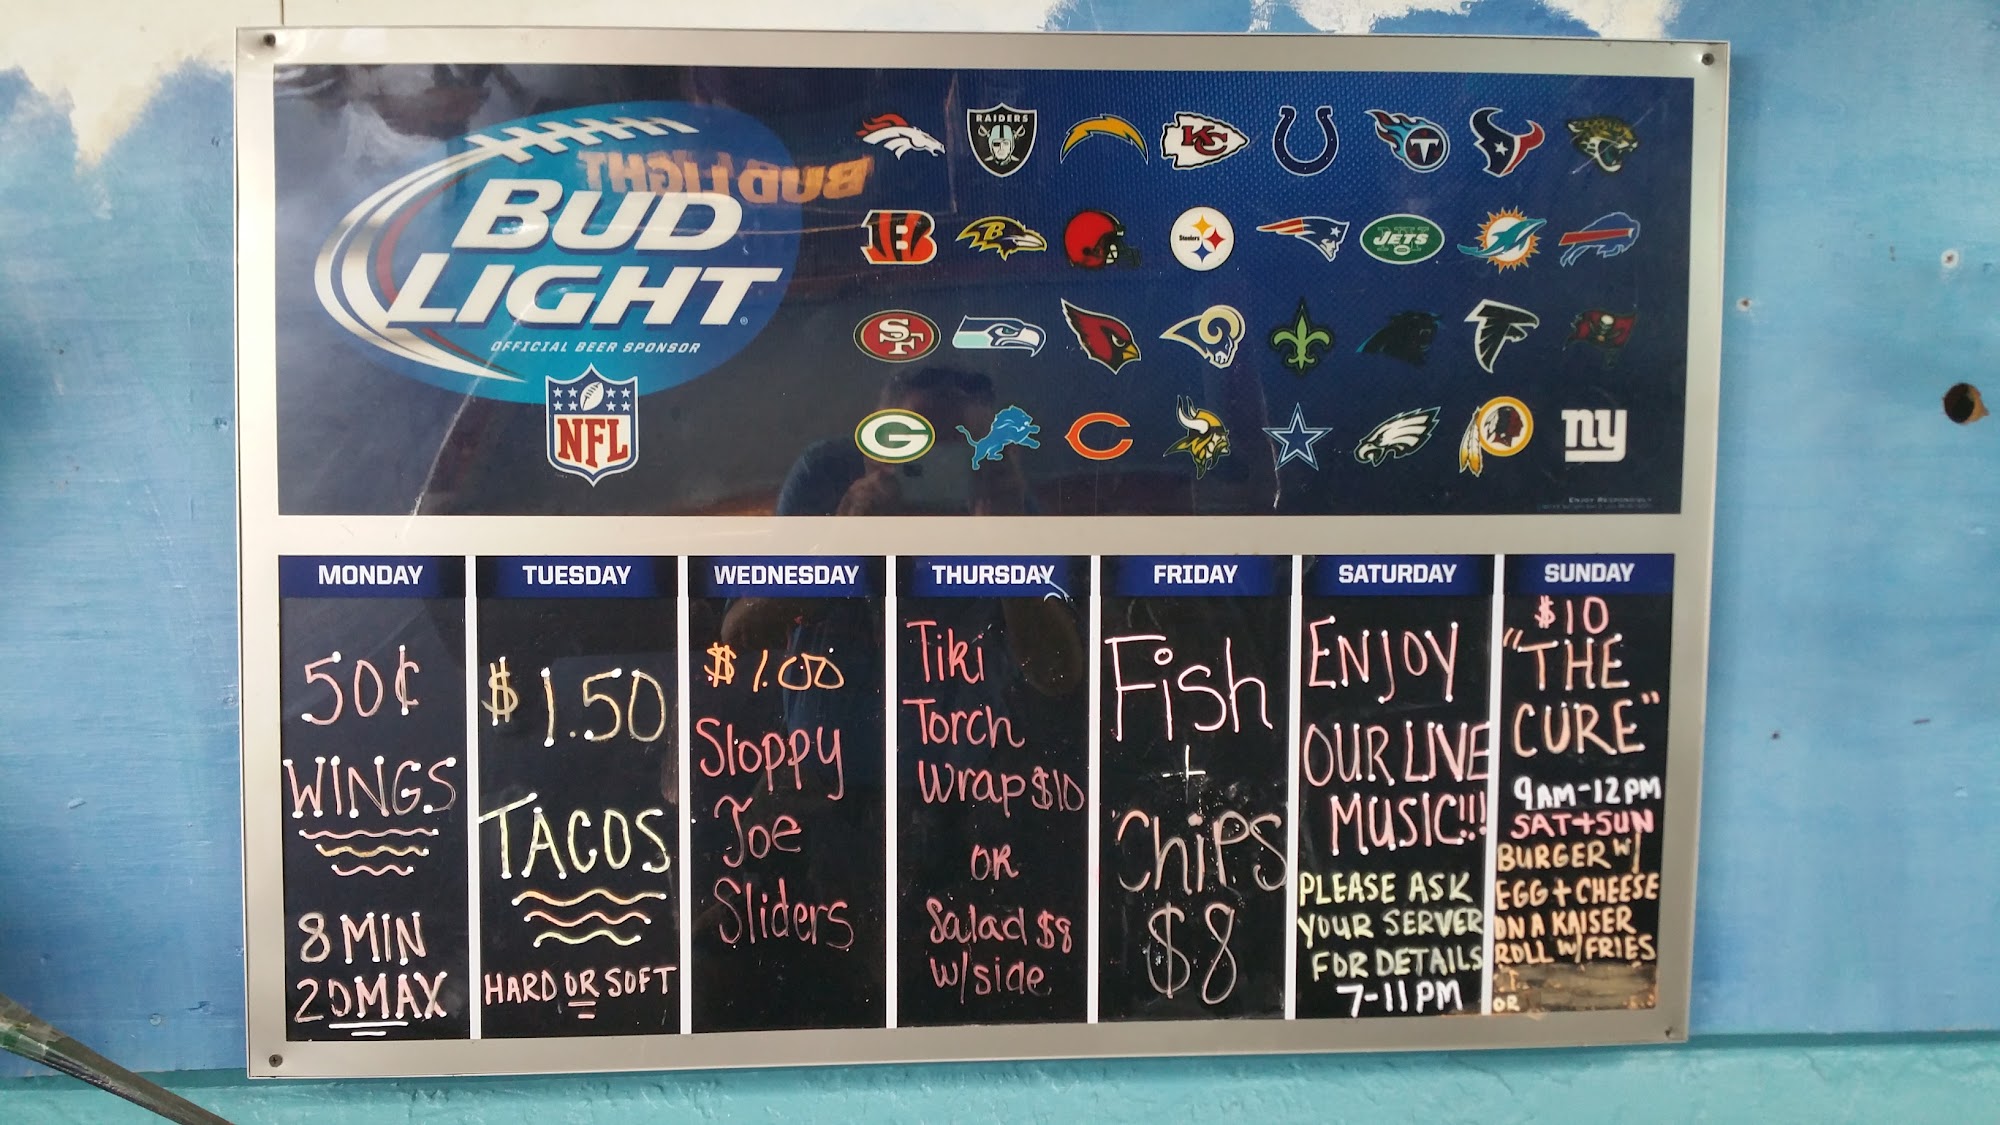 BUD LIGHT
BUD
LIGHT
OFFICIAL BEER SPONSOR
NFL
RAIDERS
KC
T
B
Steelers
NY
JETS
SF
G
C
ny
ENJOY RESPONSIBLY
MONDAY
50¢
WINGS
8 MIN
20 MAX
TUESDAY
$1.50
TACOS
HARD OR SOFT
WEDNESDAY
$1.00
Sloppy
Joe
Sliders
THURSDAY
Tiki
Torch
Wrap $10
OR
Salad $8
w/side
FRIDAY
Fish
+
Chips
$8
SATURDAY
ENJOY
OUR LIVE
MUSIC!!!
PLEASE ASK
YOUR SERVER
FOR DETAILS
7-11PM
SUNDAY
$10
"THE
CURE"
9AM-12PM
SAT+SUN
BURGER W/
EGG + CHEESE
ON A KAISER
ROLL W/ FRIES
OR